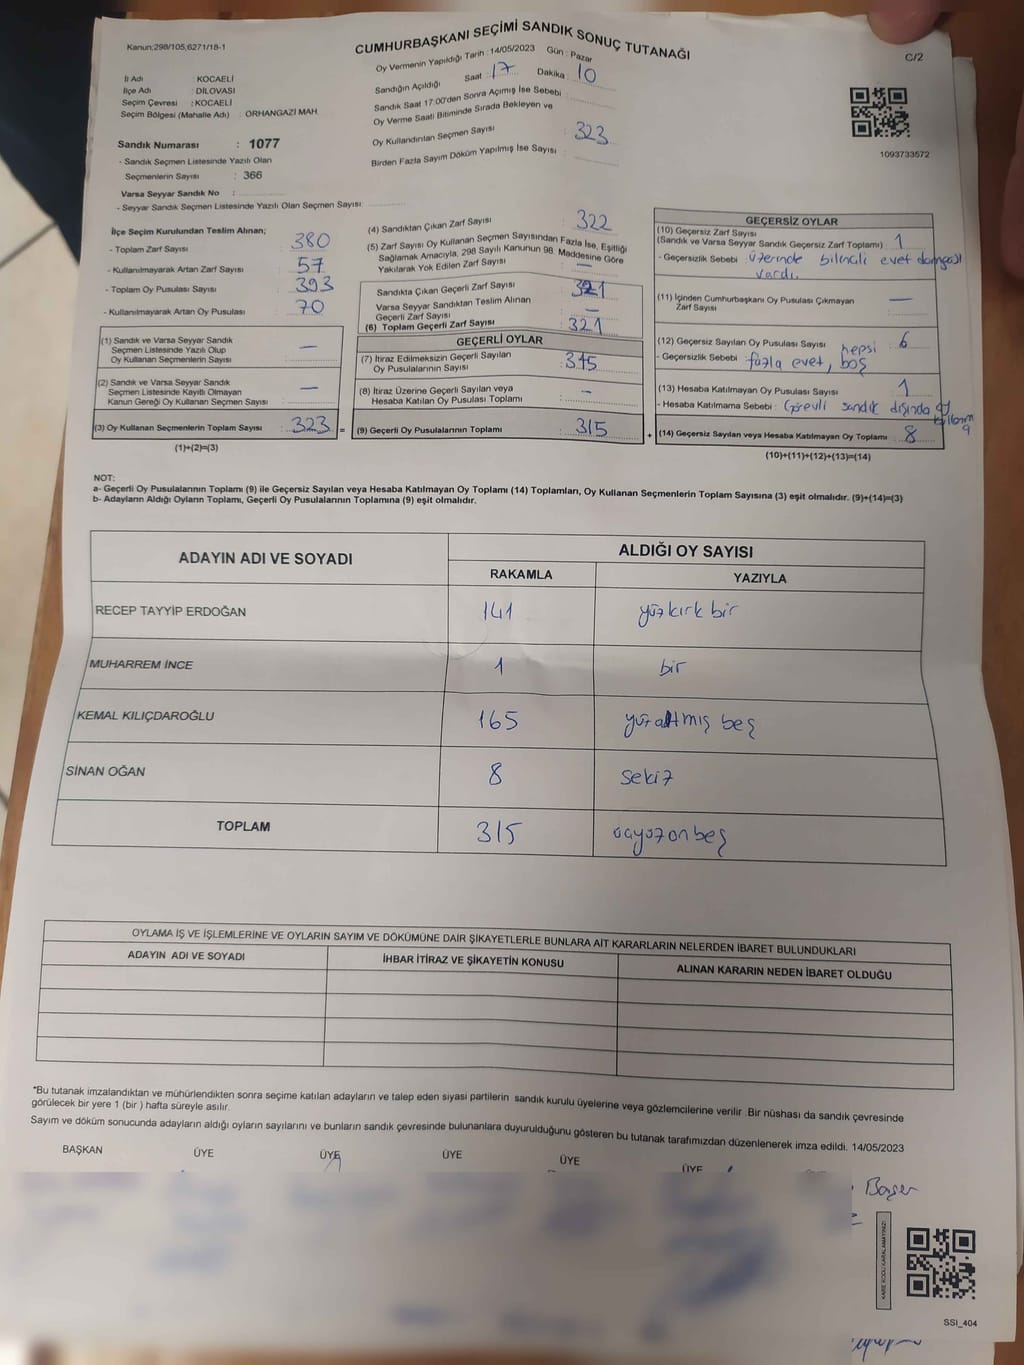 Kanun:298/105,6271/18-1
CUMHURBAŞKANI SEÇİMİ SANDIK SONUÇ TUTANAĞI
C/2
Oy Vermenin Yapıldığı Tarih : 14/05/2023 Gün : Pazar
İl Adı : KOCAELİ
İlçe Adı : DİLOVASI
Seçim Çevresi : KOCAELİ
Seçim Bölgesi (Mahalle Adı) : ORHANGAZİ MAH.
Sandık Numarası : 1077
- Sandık Seçmen Listesinde Yazılı Olan
Seçmenlerin Sayısı : 366
Varsa Seyyar Sandık No :
- Seyyar Sandık Seçmen Listesinde Yazılı Olan Seçmen Sayısı:
Sandığın Açıldığı Saat : 17 Dakika : 10
Sandık Saat 17:00'den Sonra Açımış İse Sebebi :
Oy Verme Saati Bitiminde Sırada Bekleyen ve
Oy Kullandırılan Seçmen Sayısı : 323
Birden Fazla Sayım Döküm Yapılmış İse Sayısı :
1093733572
İlçe Seçim Kurulundan Teslim Alınan;
- Toplam Zarf Sayısı : 380
- Kullanılmayarak Artan Zarf Sayısı : 57
- Toplam Oy Pusulası Sayısı : 393
- Kullanılmayarak Artan Oy Pusulası : 70
(1) Sandık ve Varsa Seyyar Sandık
Seçmen Listesinde Yazılı Olup
Oy Kullanan Seçmenlerin Sayısı : —
(2) Sandık ve Varsa Seyyar Sandık
Seçmen Listesinde Kayıtlı Olmayan
Kanun Gereği Oy Kullanan Seçmen Sayısı : —
(3) Oy Kullanan Seçmenlerin Toplam Sayısı : 323 =
(1)+(2)=(3)
(4) Sandıktan Çıkan Zarf Sayısı : 322
(5) Zarf Sayısı Oy Kullanan Seçmen Sayısından Fazla İse, Eşitliği
Sağlamak Amacıyla, 298 Sayılı Kanunun 98. Maddesine Göre
Yakılarak Yok Edilen Zarf Sayısı : —
Sandıkta Çıkan Geçerli Zarf Sayısı : 321
Varsa Seyyar Sandıktan Teslim Alınan
Geçerli Zarf Sayısı : —
(6) Toplam Geçerli Zarf Sayısı : 321
GEÇERLİ OYLAR
(7) İtiraz Edilmeksizin Geçerli Sayılan
Oy Pusulalarının Sayısı : 315
(8) İtiraz Üzerine Geçerli Sayılan veya
Hesaba Katılan Oy Pusulası Toplamı : -
(9) Geçerli Oy Pusulalarının Toplamı : 315 +
GEÇERSİZ OYLAR
(10) Geçersiz Zarf Sayısı
(Sandık ve Varsa Seyyar Sandık Geçersiz Zarf Toplamı) : 1
- Geçersizlik Sebebi : üzerinde bilinçli evet damgası
vardı.
(11) İçinden Cumhurbaşkanı Oy Pusulası Çıkmayan
Zarf Sayısı : —
(12) Geçersiz Sayılan Oy Pusulası Sayısı : 6
- Geçersizlik Sebebi : hepsi
fazla evet, boş
(13) Hesaba Katılmayan Oy Pusulası Sayısı : 1
- Hesaba Katılmama Sebebi : Görevli sandık dışında oy
(14) Geçersiz Sayılan veya Hesaba Katılmayan Oy Toplamı : 8
(10)+(11)+(12)+(13)=(14)
NOT:
a- Geçerli Oy Pusulalarının Toplamı (9) ile Geçersiz Sayılan veya Hesaba Katılmayan Oy Toplamı (14) Toplamları, Oy Kullanan Seçmenlerin Toplam Sayısına (3) eşit olmalıdır. (9)+(14)=(3)
b- Adayların Aldığı Oyların Toplamı, Geçerli Oy Pusulalarının Toplamına (9) eşit olmalıdır.
ADAYIN ADI VE SOYADI ALDIĞI OY SAYISI
RAKAMLA YAZIYLA
RECEP TAYYİP ERDOĞAN 141 yüzkırk bir
MUHARREM İNCE 1 bir
KEMAL KILIÇDAROĞLU 165 yüzaltmış beş
SİNAN OĞAN 8 sekiz
TOPLAM 315 üçyüzonbeş
OYLAMA İŞ VE İŞLEMLERİNE VE OYLARIN SAYIM VE DÖKÜMÜNE DAİR ŞİKAYETLERLE BUNLARA AİT KARARLARIN NELERDEN İBARET BULUNDUKLARI
ADAYIN ADI VE SOYADI İHBAR İTİRAZ VE ŞİKAYETİN KONUSU ALINAN KARARIN NEDEN İBARET OLDUĞU
*Bu tutanak imzalandıktan ve mühürlendikten sonra seçime katılan adayların ve talep eden siyasi partilerin sandık kurulu üyelerine veya gözlemcilerine verilir .Bir nüshası da sandık çevresinde
görülecek bir yere 1 (bir ) hafta süreyle asılır.
Sayım ve döküm sonucunda adayların aldığı oyların sayılarını ve bunların sandık çevresinde bulunanlara duyurulduğunu gösteren bu tutanak tarafımızdan düzenlenerek imza edildi. 14/05/2023
BAŞKAN ÜYE ÜYE ÜYE ÜYE ÜYE
Başer
KARE KODU KARALAMAYINIZ!
SSI_404